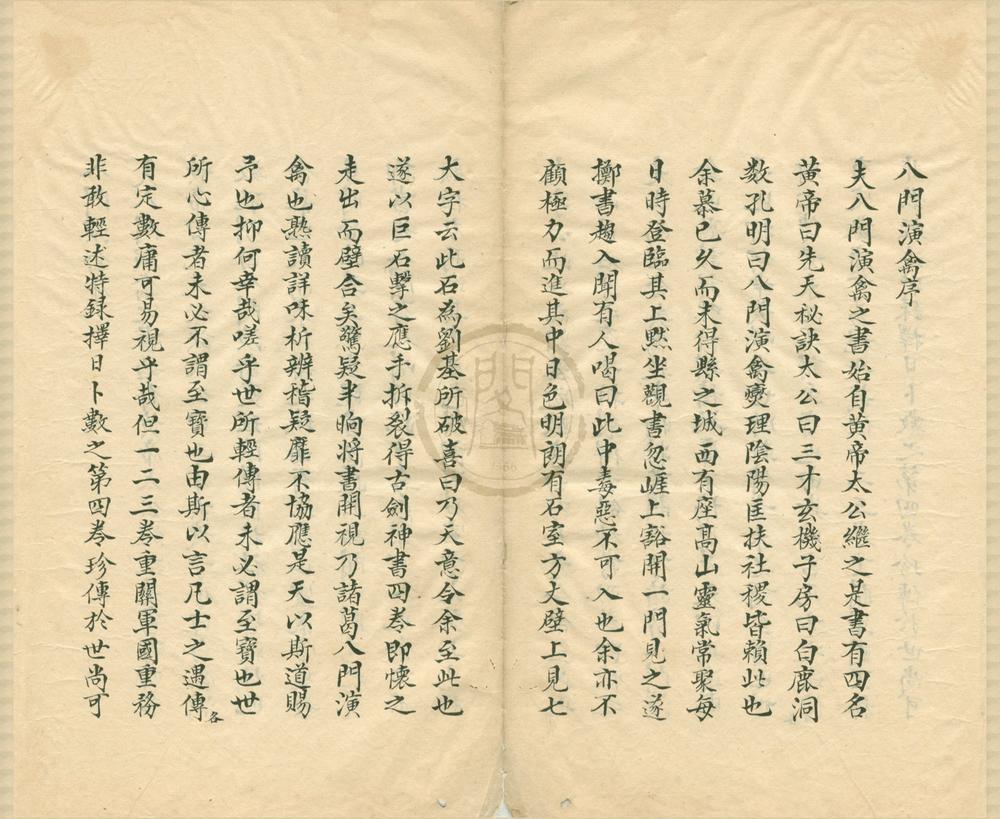 八門演禽序
夫八門演禽之書始自黃帝太公繼之是書有四名
黃帝曰先天秘訣太公曰三才玄機子房曰白鹿洞
数孔明曰八門演禽燮理陰陽匡扶社稷皆賴此也
余慕已久而未得縣之城西有座高山靈氣常聚每
日時登臨其上黙坐觀書忽崕上豁開一門見之遂
擲書趨入聞有人喝曰此中毒惡不可入也余亦不
顧極力而進其中日色明朗有石室方丈壁上見七
大字云此石為劉基所破喜曰乃天意令余至此也
遂以巨石擊之應手拆裂得古劍神書四夲即懷之
走出而壁合矣驚疑半晌將書開視乃諸葛八門演
禽也熟讀詳味析辨稽疑靡不協應是天以斯道賜
予也抑何幸哉嗟乎世所輕傳者未必謂至寶也世
所心傳者未必不謂至寶也由斯以言凡士之遇傳各
有定數庸可易視乎哉但一二三夲重關軍國重務
非敢輕述特録擇日卜數之第四夲珍傳於世尚可
1966